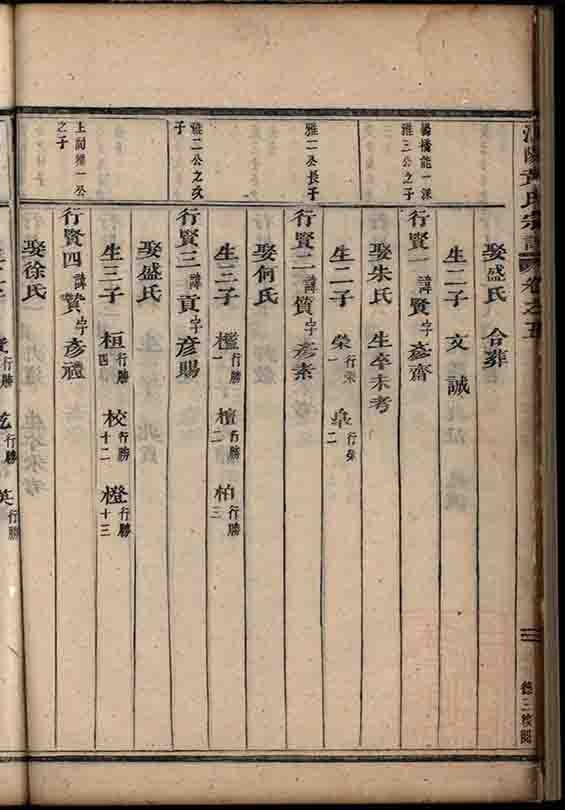 黃氏宗譜 卷之五
娶盛氏 合葬
生二子 文 誠
楊橋能一派雅三公之子
行賢一 諱賢 字彥齋
娶朱氏 生卒未考
生二子 榮行榮一 行榮二
雅一公長子
行賢二 諱質 字彥素
娶何氏
生三子 檻行勝一 檀行勝二 柏行勝三
雅二公之次子
行賢三 諱貢 字彥賜
娶盛氏
生三子 桓行勝四 校行勝十二 橙行勝十三
上祠雅一公之子
行賢四 諱贊 字彥禮
娶徐氏
生子 行勝 行勝 英行勝
三